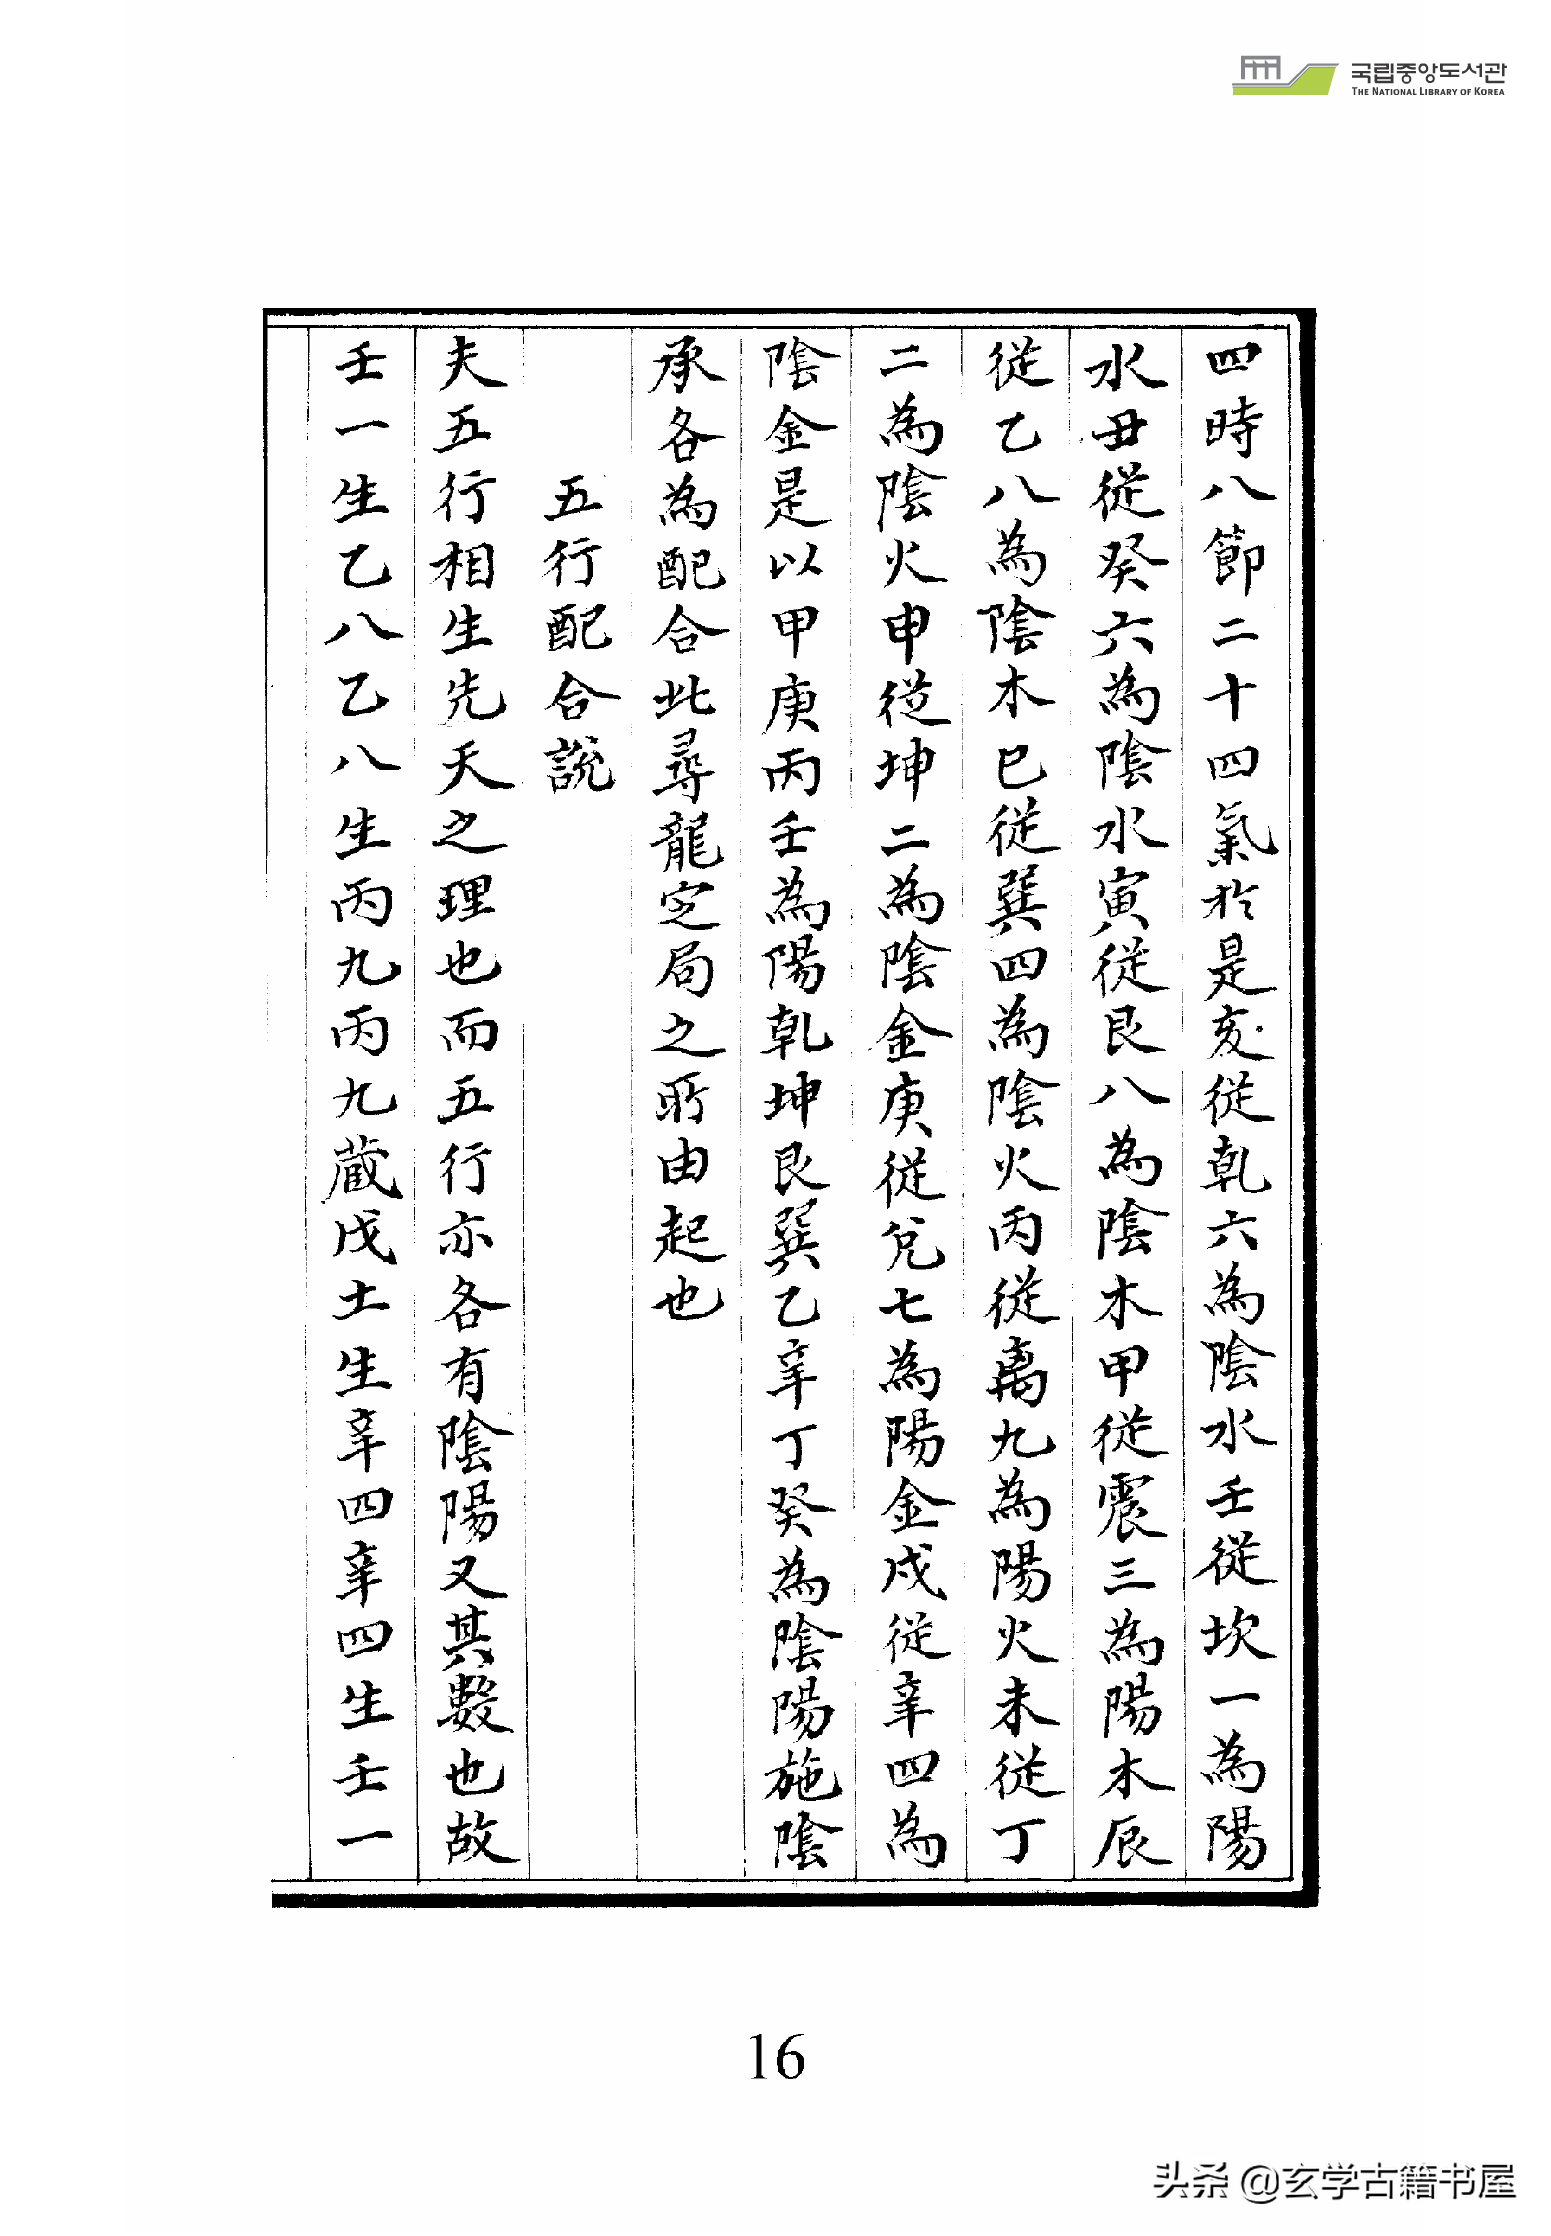 국립중앙도서관
THE NATIONAL LIBRARY OF KOREA
四時八節二十四氣於是亥從乾六為陰水壬從坎一為陽
水丑從癸六為陰水寅從艮八為陰木甲從震三為陽木辰
從乙八為陰木巳從巽四為陰火丙從离九為陽火未從丁
二為陰火申從坤二為陰金庚從兌七為陽金戌從辛四為
陰金是以甲庚丙壬為陽乾坤艮巽乙辛丁癸為陰陽施陰
承各為配合此尋龍定局之所由起也
五行配合說
夫五行相生先天之理也而五行亦各有陰陽又其數也故
壬一生乙八乙八生丙九丙九蔵戊土生辛四辛四生壬一
16
头条 @玄学古籍书屋